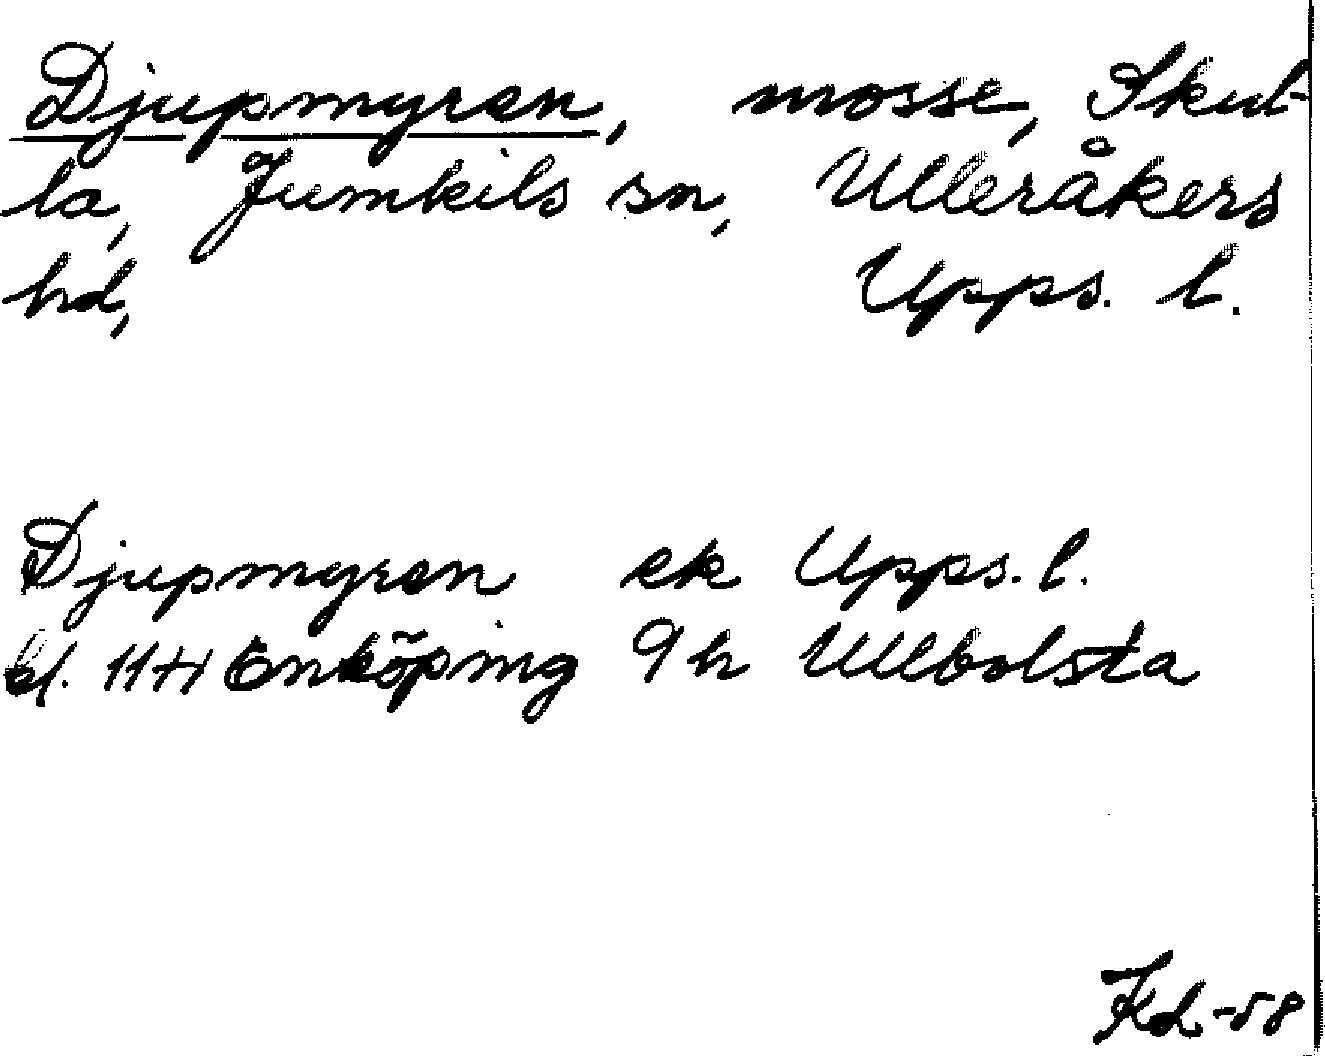 Djupmyren, mosse, Skut-
la, Jumkils sn, Ulleråkers
hd, Upps. l.
Djupmyren ek Upps. l.
bl. 11H Enköping 9 h Ullbolsta
Kd -58